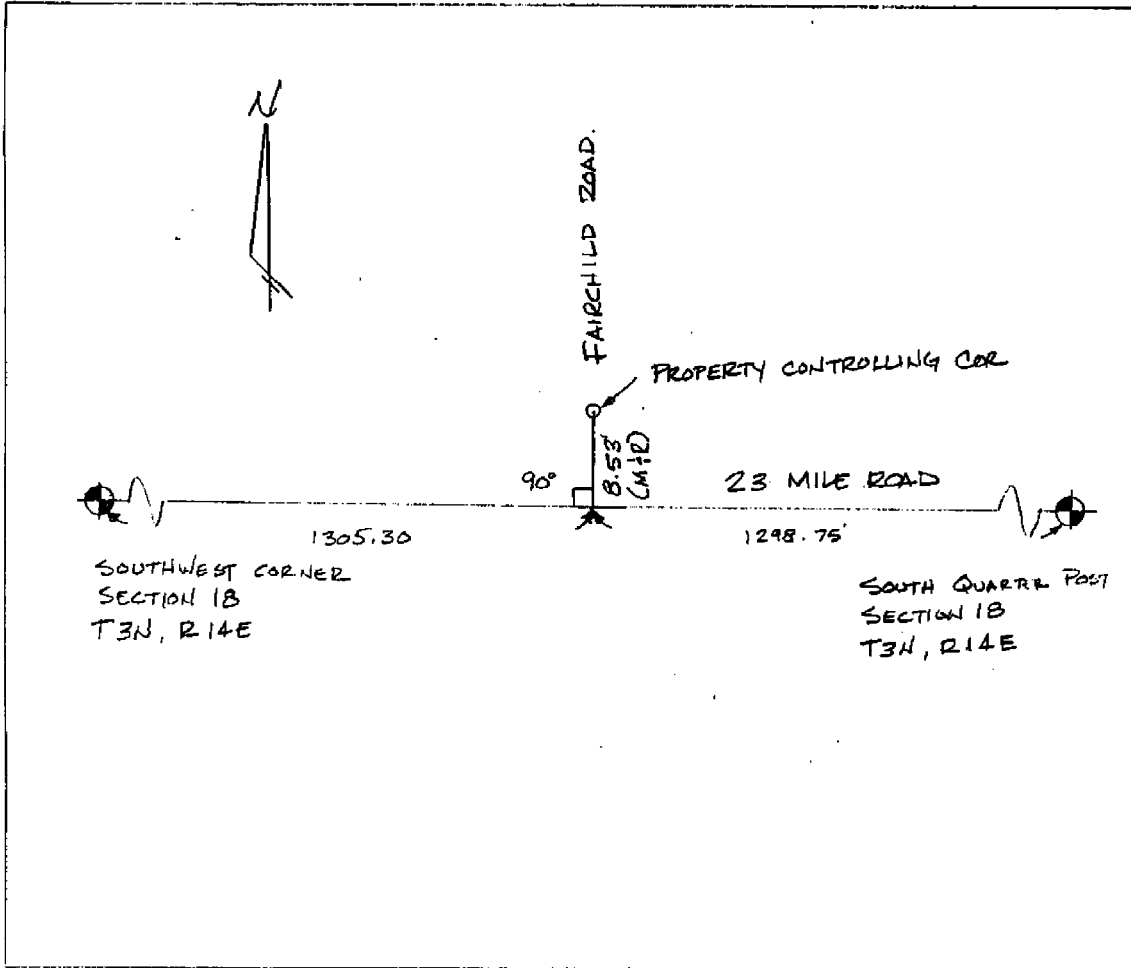 N
FAIRCHILD ROAD.
PROPERTY CONTROLLING COR
8.53'
(M&R)
90°
23 MILE ROAD
1305.30
1298.75'
SOUTHWEST CORNER
SECTION 18
T3N, R14E
SOUTH QUARTER POST
SECTION 18
T3N, R14E